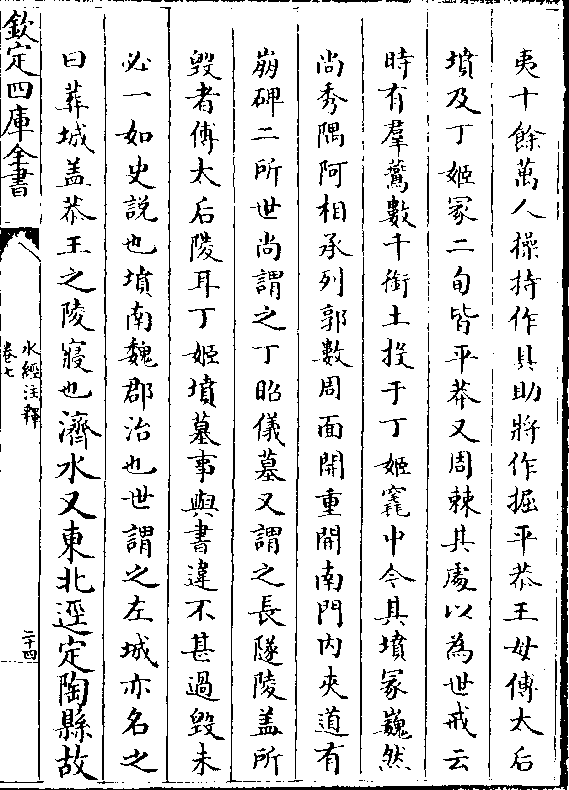 夷十餘萬人操持作具助將作掘平恭王母傅太后
墳及丁姬冢二旬皆平莽又周棘其處以為世戒云
時有羣鷰數千銜土投于丁姬竁中今其墳冢巍然
尚秀隅阿相承列郭數周面開重開南門内夾道有
崩碑二所世尚謂之丁昭儀墓又謂之長隧陵盖所
毁者傅太后陵耳丁姬墳墓事與書違不甚過毁未
必一如史説也墳南魏郡治也世謂之左城亦名之
曰葬城盖恭王之陵寢也濟水又東北逕定陶縣故
欽定四庫全書
水經注釋
卷七
二十四